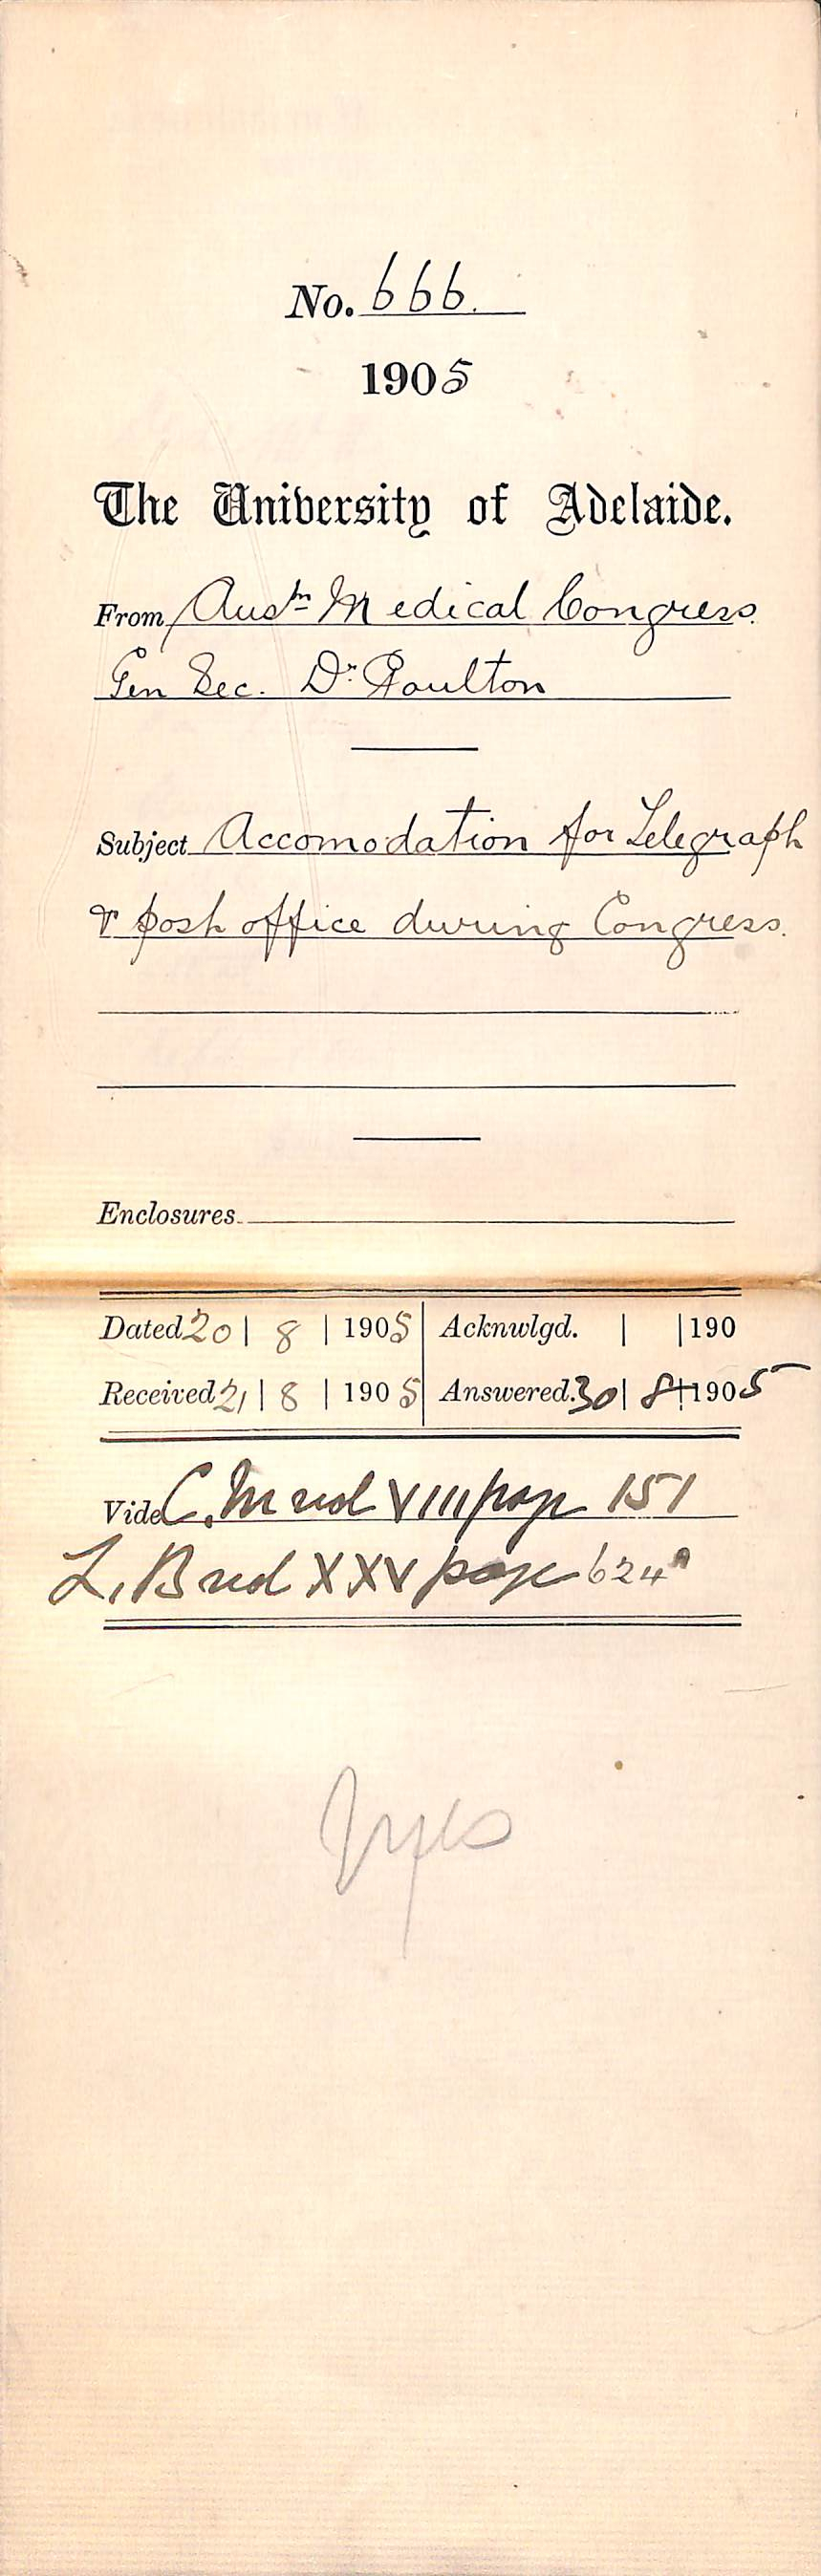 No. 666.
1905
The University of Adelaide.
From Austn Medical Congress.
Gen Sec. Dr. Poulton
Subject Accomodation for Telegraph
& post office during Congress.
Enclosures
Dated 20 | 8 | 1905 Acknwlgd. | | 190
Received 21 | 8 | 1905 Answered. 30 | 8 | 1905
Vide C. M vol VIII page 151
L, B vol XXV page 624a